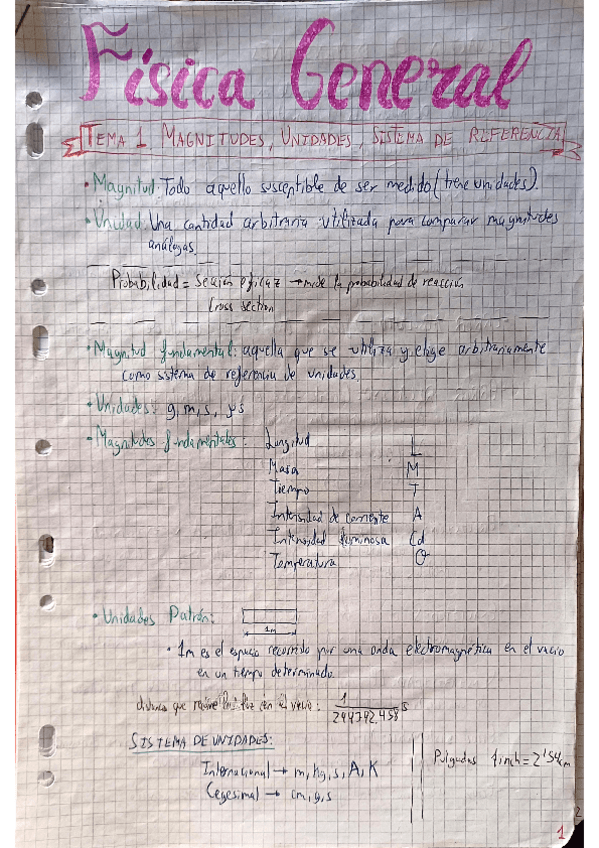 Física General
TEMA 1 MAGNITUDES, UNIDADES, SISTEMA DE REFERENCIA
• Magnitud: Todo aquello susceptible de ser medido (tiene unidades).
• Unidad: Una cantidad arbitraria utilizada para comparar magnitudes
análogas.
Probabilidad = Sección eficaz → mide la probabilidad de reacción
Cross section
• Magnitud fundamental: aquella que se utiliza y elige arbitrariamente
como sistema de referencia de unidades.
• Unidades: g, m, s,
• Magnitudes fundamentales: Longitud L
Masa M
Tiempo T
Intensidad de corriente A
Intensidad luminosa Cd
Temperatura Θ
• Unidades Patrón:
1m
• 1m es el espacio recorrido por una onda electromagnética en el vacío
en un tiempo determinado.
que luz en el vacío: 1/299792.458 s
SISTEMA DE UNIDADES:
Internacional → m, kg, s, A, K
Cegesimal → cm, g, s
Pulgadas 1 inch = 2'54cm
2
1